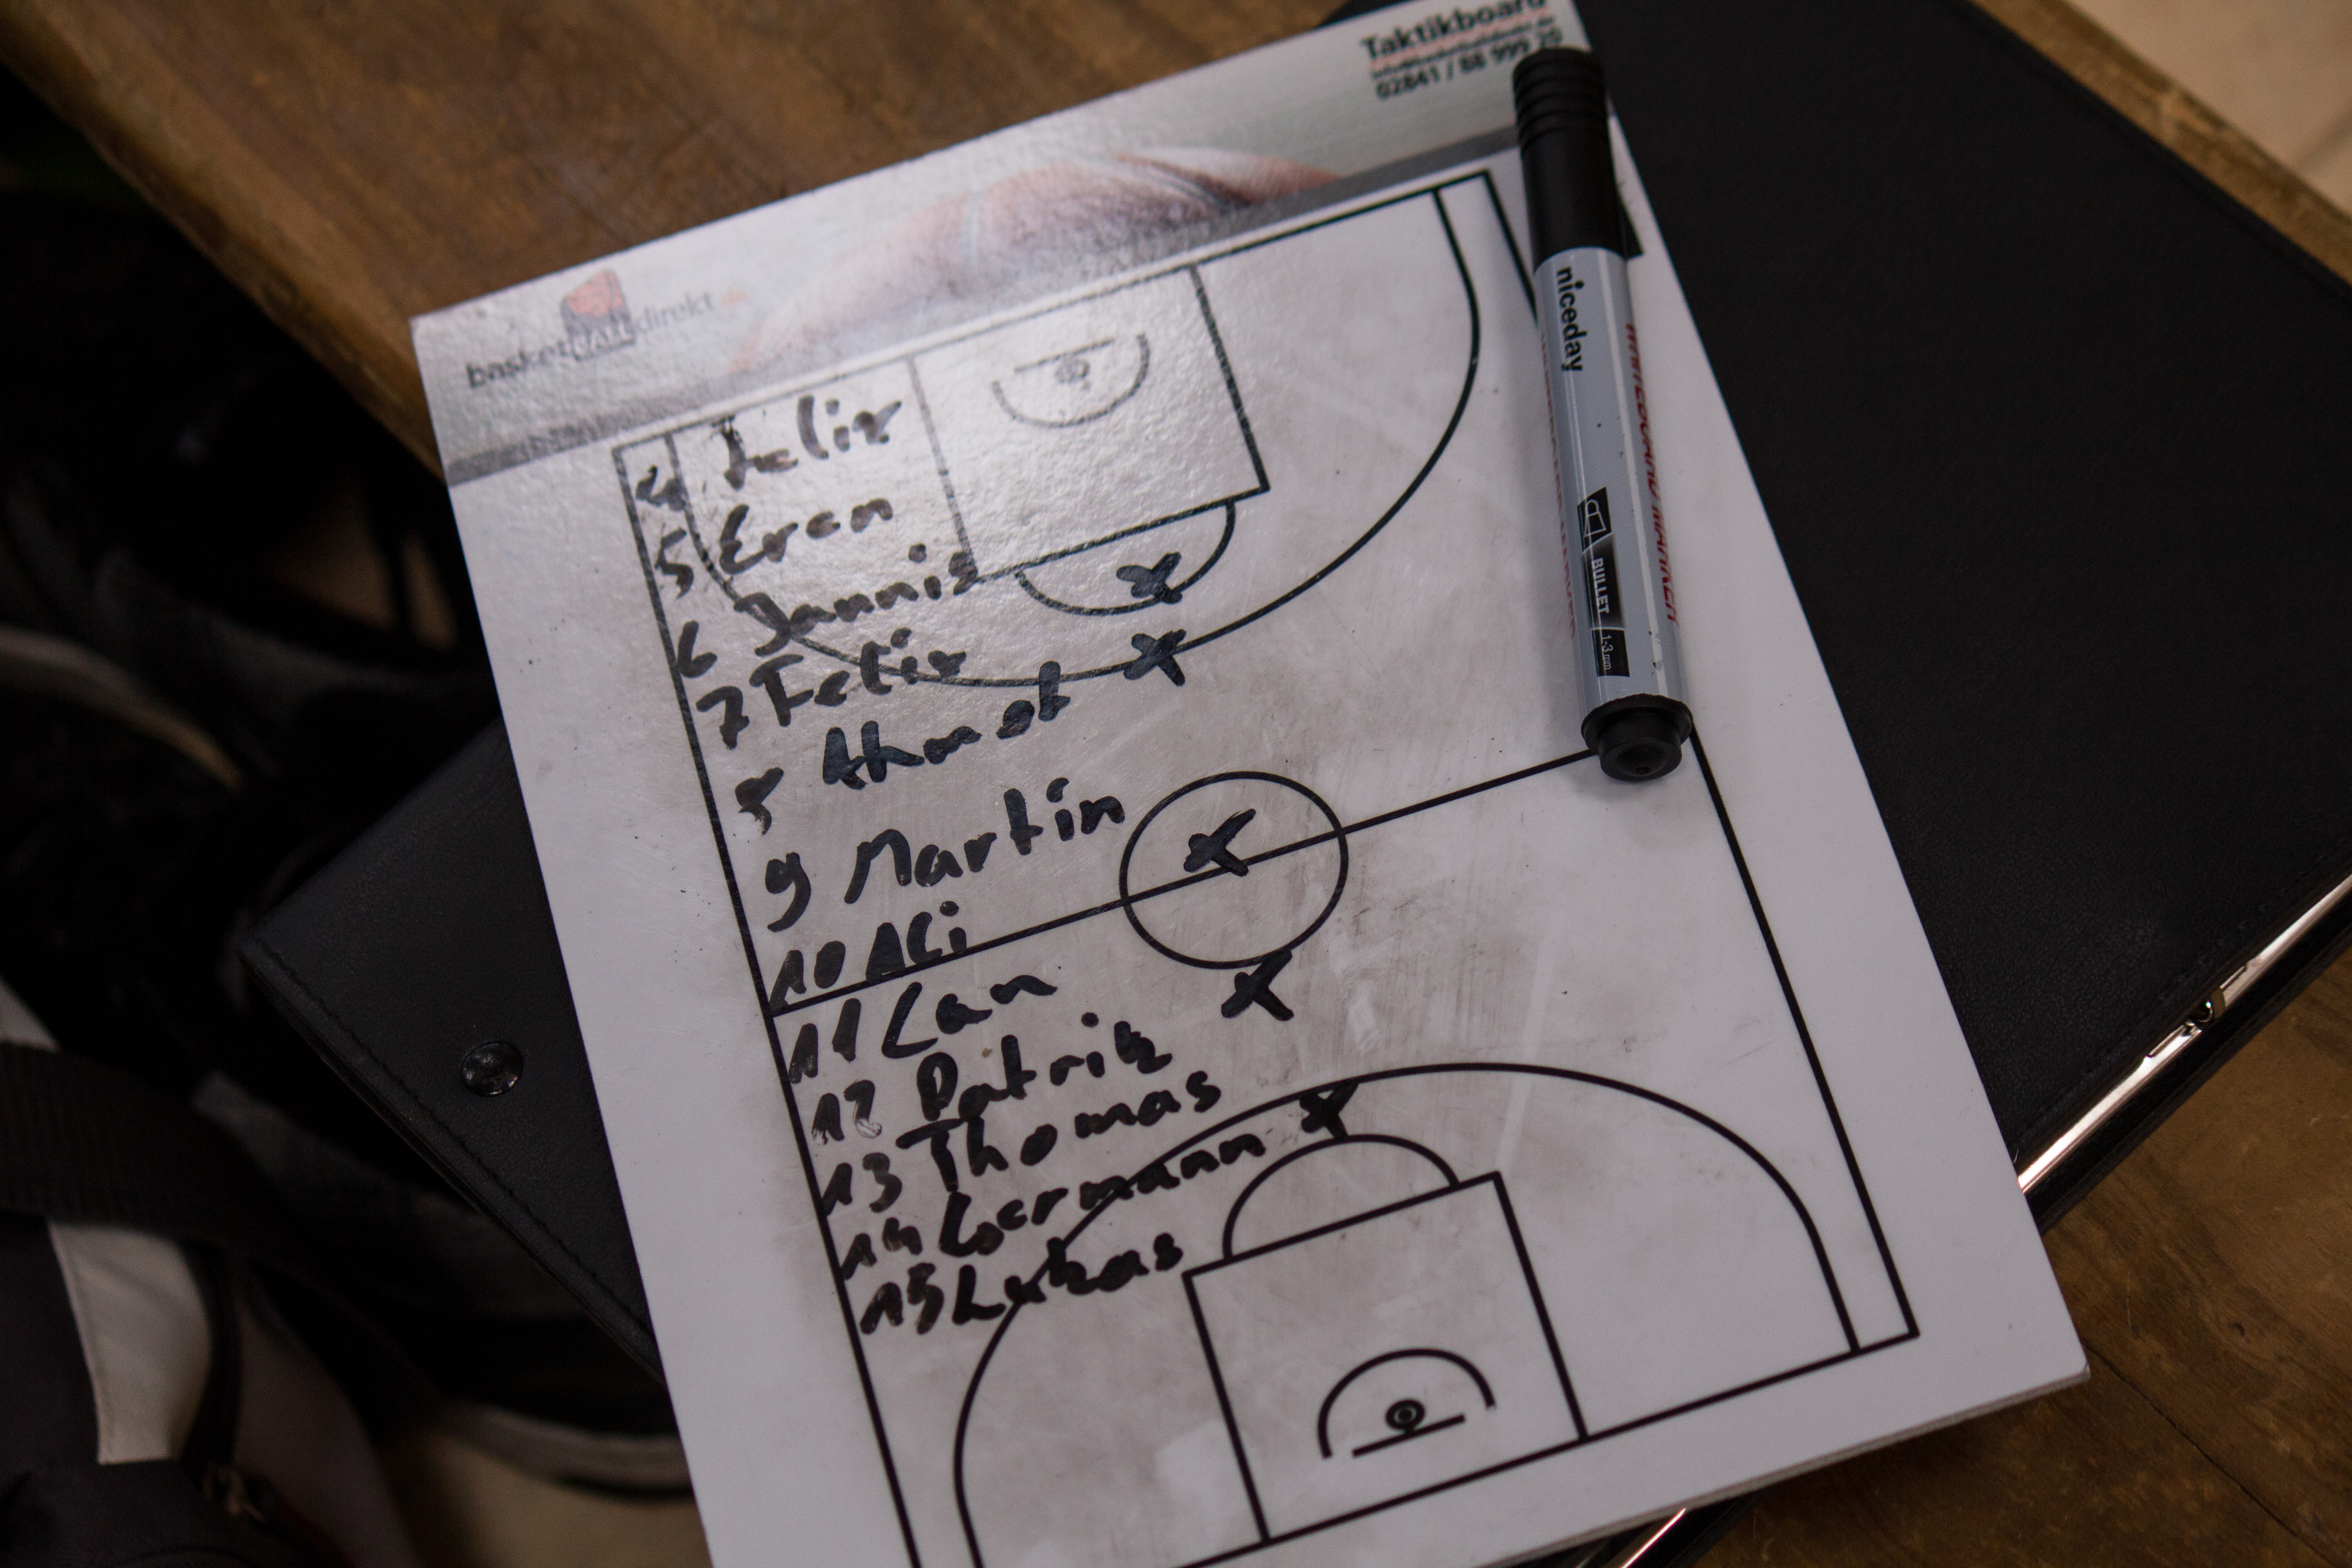 Taktikboard
02841 / 88 999 20
basketBALLdirekt.de
4 Felix
5 Eren
6 Jannis
7 Felix
8 Ahmet
9 Martin
10 Ali
11 Can
12 Patrik
13 Thomas
14 Germann
15 Lukas
niceday
WHITEBOARD MARKER
BULLET
1-3 mm